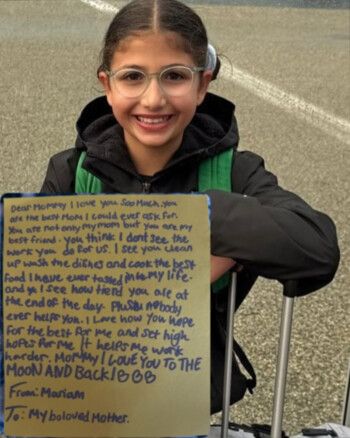 Dear Mommy I Love you Soo Much. you
are the best Mom I could ever ask for.
You are not only my mom but you are my
best friend. you think I dont see the
work you do for us. I see you clean
up wash the dishes and cook the best
food I have ever tasted in my life.
and ya I see how tierd you are at
the end of the day. Plus nobody
ever helps you. I Love how you hope
for the best for me and set high
hopes for me. It helps me work
harder. Mommy I LOVE YOU TO THE
MOON AND Back!
From: Mariam
To: My beloved Mother.